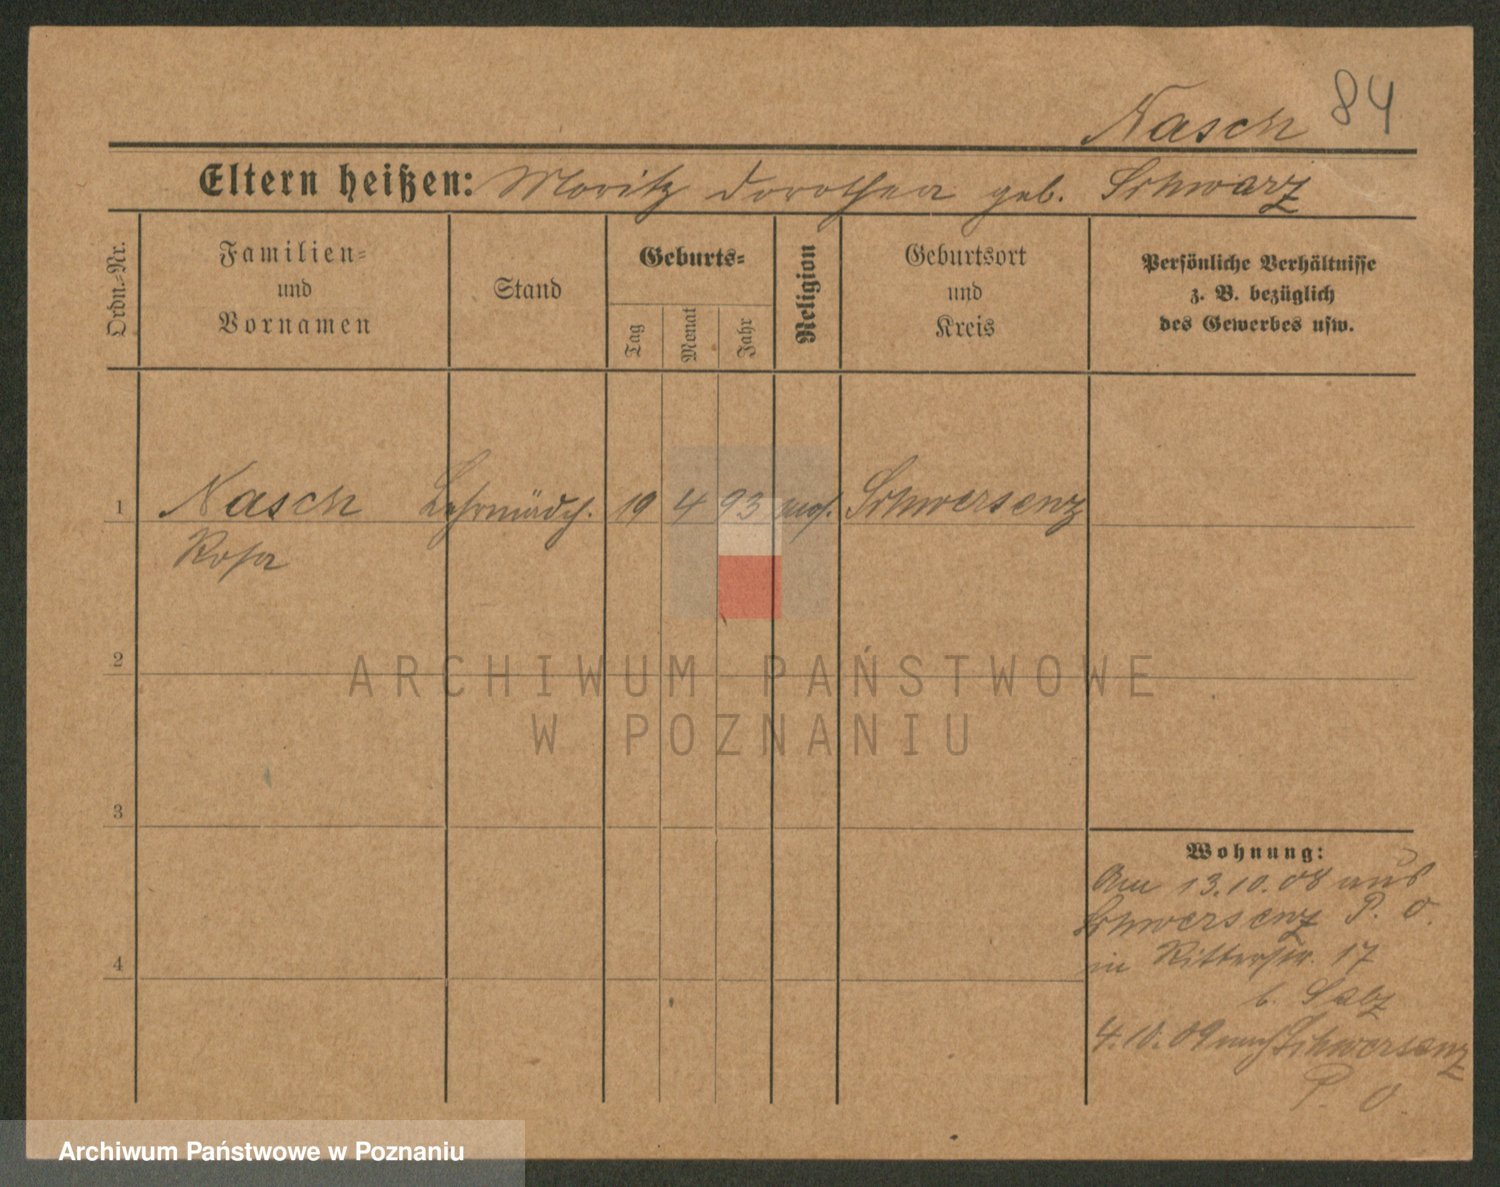 84
Nasch
Eltern heißen: Moritz Dorothea geb. Schwarz
Ordn.-Nr.
Familien-
und
Vornamen
Stand
Geburts-
Tag
Monat
Jahr
Religion
Geburtsort
und
Kreis
Persönliche Verhältnisse
z. B. bezüglich
des Gewerbes usw.
1 Nasch Lehrmädch. 19 4 93 mos. Schwersenz
Rosa
2
3
4
Wohnung:
Am 13.10.08 aus
Schwersenz P. O.
in Ritterstr. 17
b.
4.10.09 nach Schwersenz
P. O
ARCHIWUM PAŃSTWOWE
W POZNANIU
Archiwum Państwowe w Poznaniu